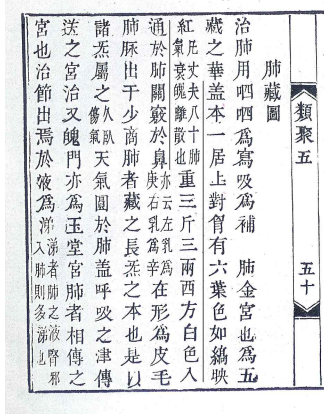 類聚五　五十
肺藏圖
治肺用呬呬爲寫吸爲補　肺金宮也爲五
藏之華盖本一居上對胷有六葉色如縞映
紅凡丈夫八十肺氣衰魄離散也重三斤三兩西方白色入
通於肺關竅於鼻亦云左乳爲庚右乳爲辛在形爲皮毛
肺脉出于少商肺者藏之長炁之本也是以
諸炁屬之久臥傷氣天氣圓於肺盖呼吸之津傳
送之宮治又魄門亦爲玉堂宮肺者相傳之
宮也治節出焉於液爲涕涕者肺之液腎邪入肺則多涕也